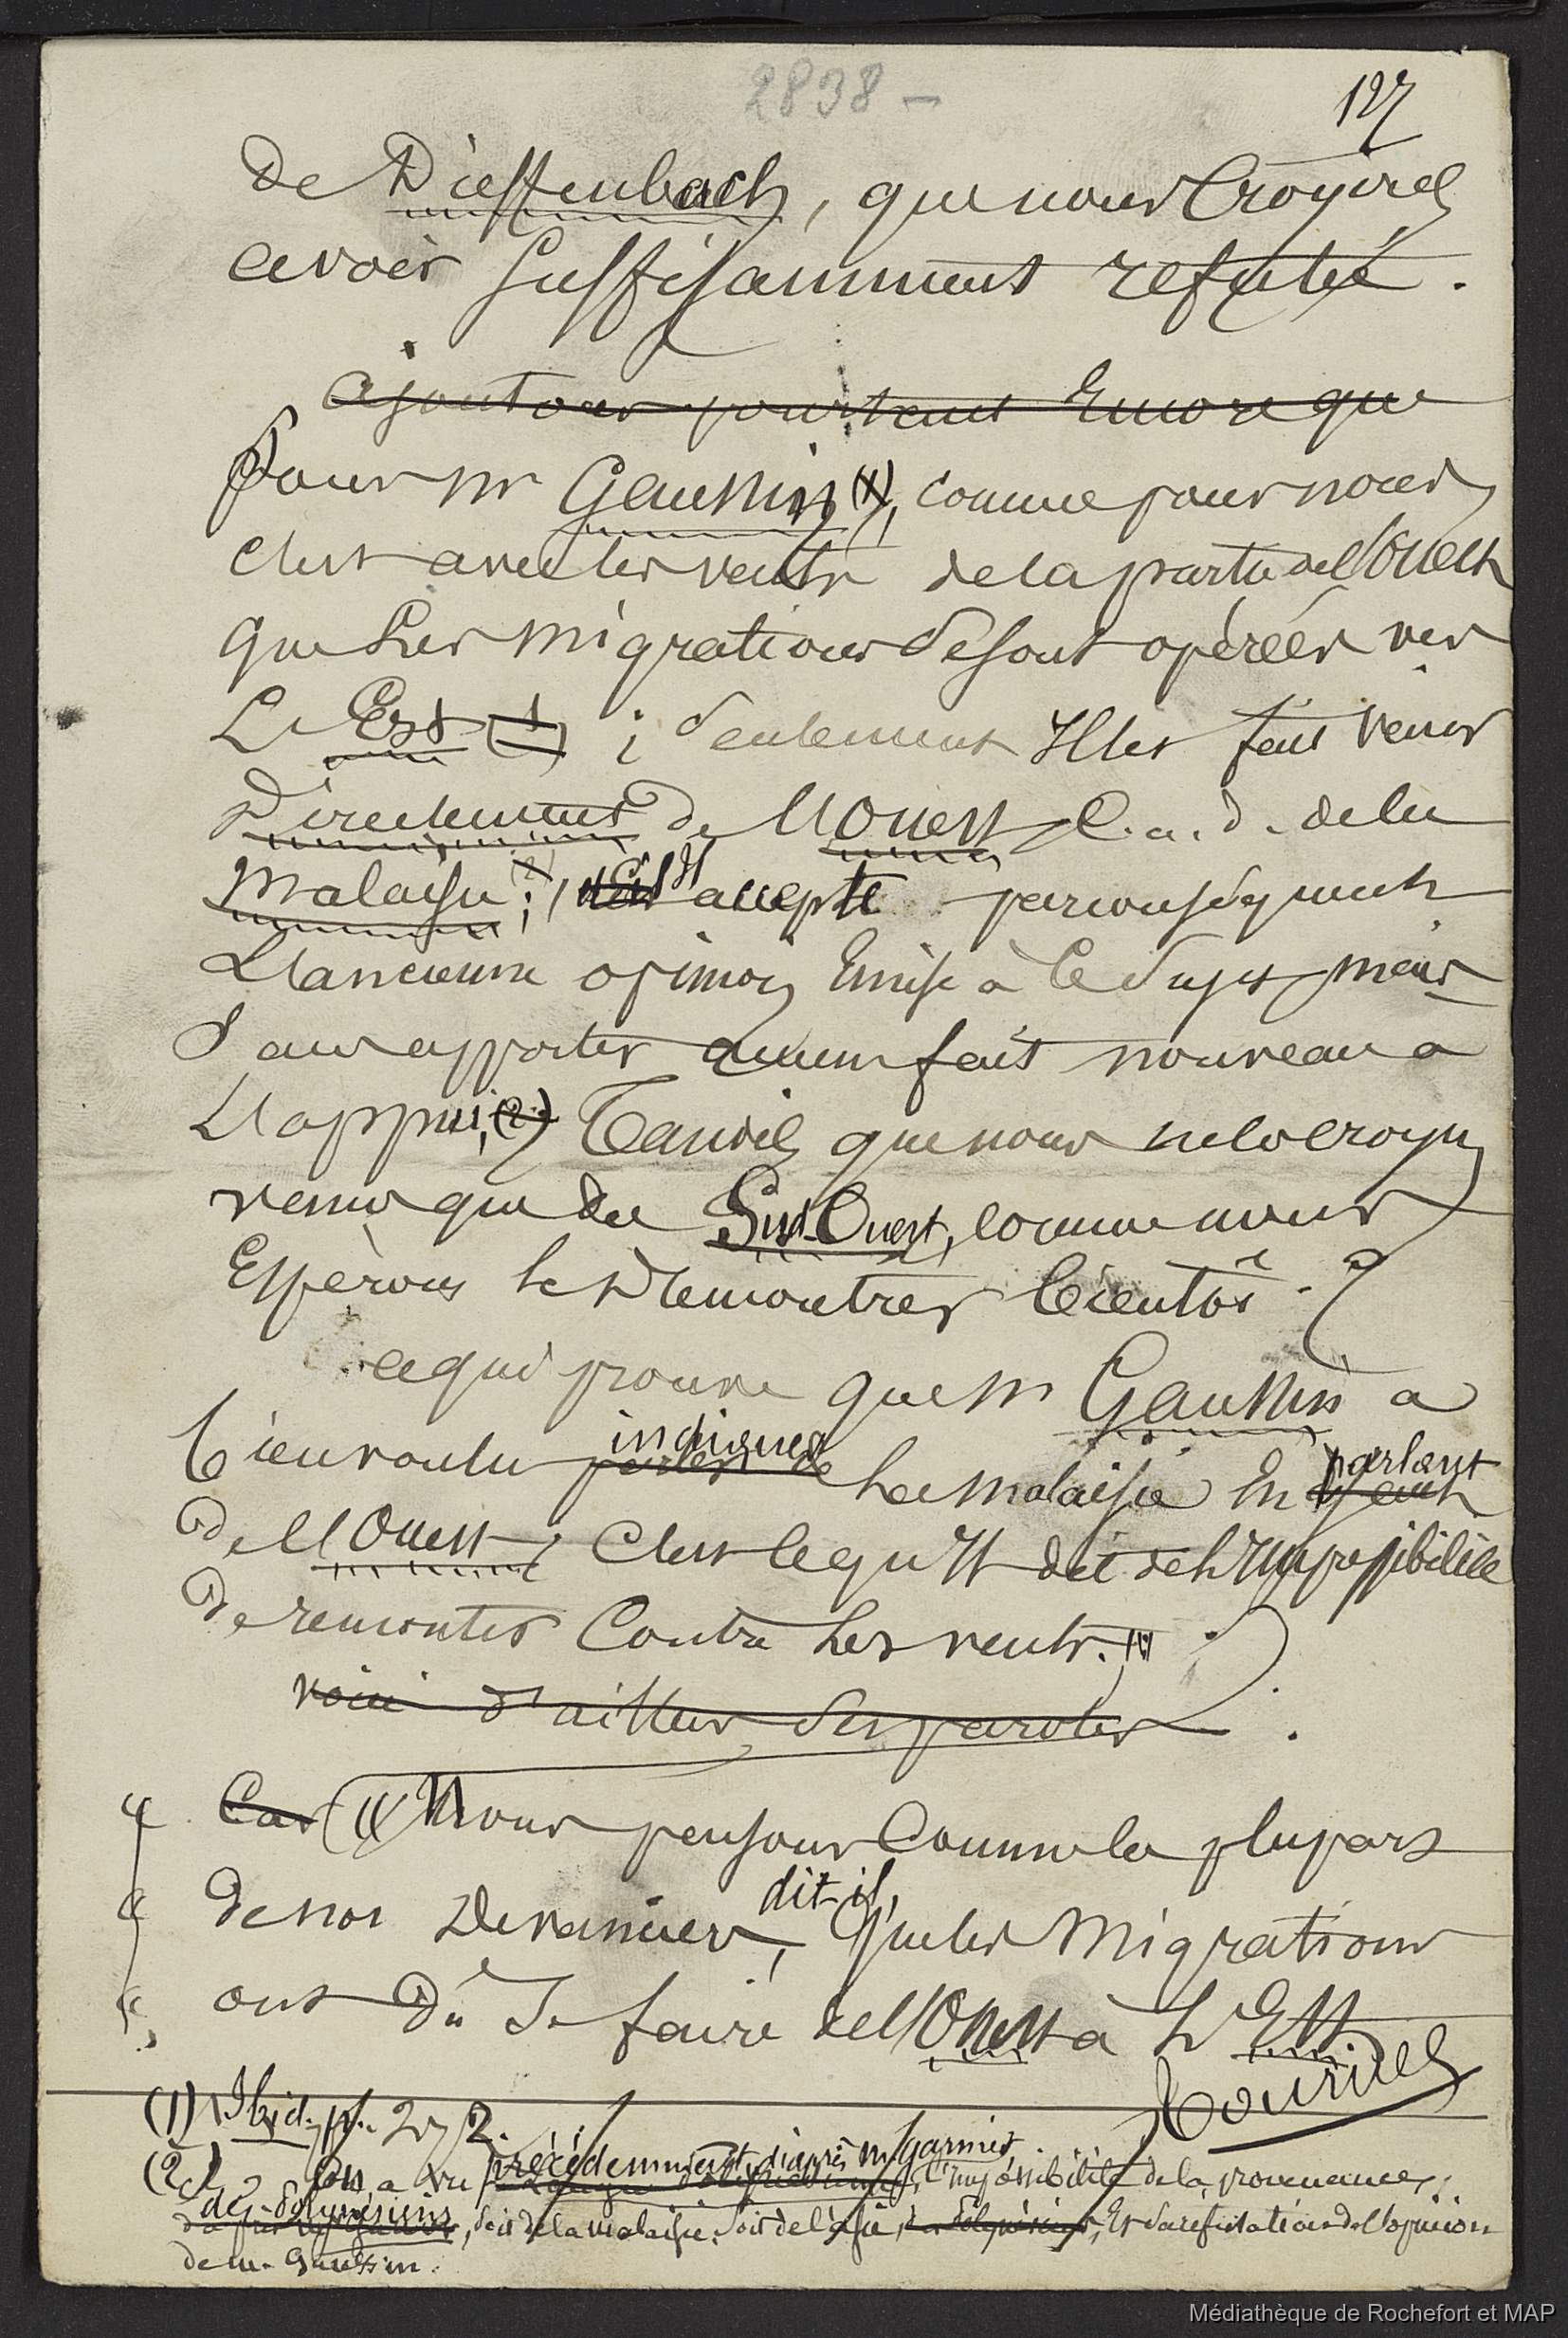 2838 -
127
de Dieffenbach, que nous croyons
avoir suffisamment refuté.
ajoutons pourtant encore que
Pour Mr Gaussin (1), comme pour nous,
c'est avec les vents de la partie de l'Ouest
que les migrations se sont opérées vers
L'Est (1) ; seulement Il les fait venir
Directement de l'Ouest, C. a. d. de la
Malaisie (2) ; Il accepte par conséquent
L'ancienne opinion émise à ce sujet, mais
sans apporter aucun fait nouveau à
L'appui, (2) Tandis que nous ne la croyons
venir que du Sud-Ouest, comme nous
Espérons le démontrer bientôt.
ce qui prouve que Mr Gaussin a
bien voulu parler de indiquer la Malaisie en parlant
de l'Ouest, c'est ce qu'Il dit de l'Impossibilité
de remonter contre les vents. (1)
voici d'ailleurs ses paroles
Car (« Nous pensons comme la plupart
de nos devanciers, dit-il, que les migrations
ont dû se faire de l'Ouest à L'Est.
Tournez
(1) Ibid. p. 272.
(2) On a vu précédemment, d'après m. Garnier, l'impossibilité de la provenance
des Polynésiens, soit de la Malaisie, soit de l'Asie, les Polynésiens, Et sa réfutation de l'opinion
de m. Gaussin.
Médiathèque de Rochefort et MAP